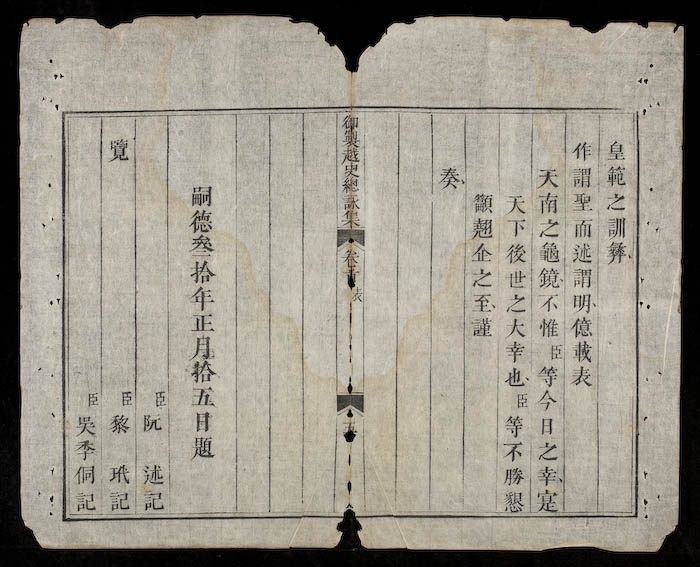 皇範之訓彝、
作謂聖而述謂明億載表
天南之龜鏡、不惟臣等今日之幸、寔
天下後世之大幸也、臣等不勝懇
籲翹企之至、謹
奏、
御製越史總詠集 卷首 表
嗣德叁拾年正月拾五日題
臣阮述記
覽 臣黎玳記
臣吳季侗記